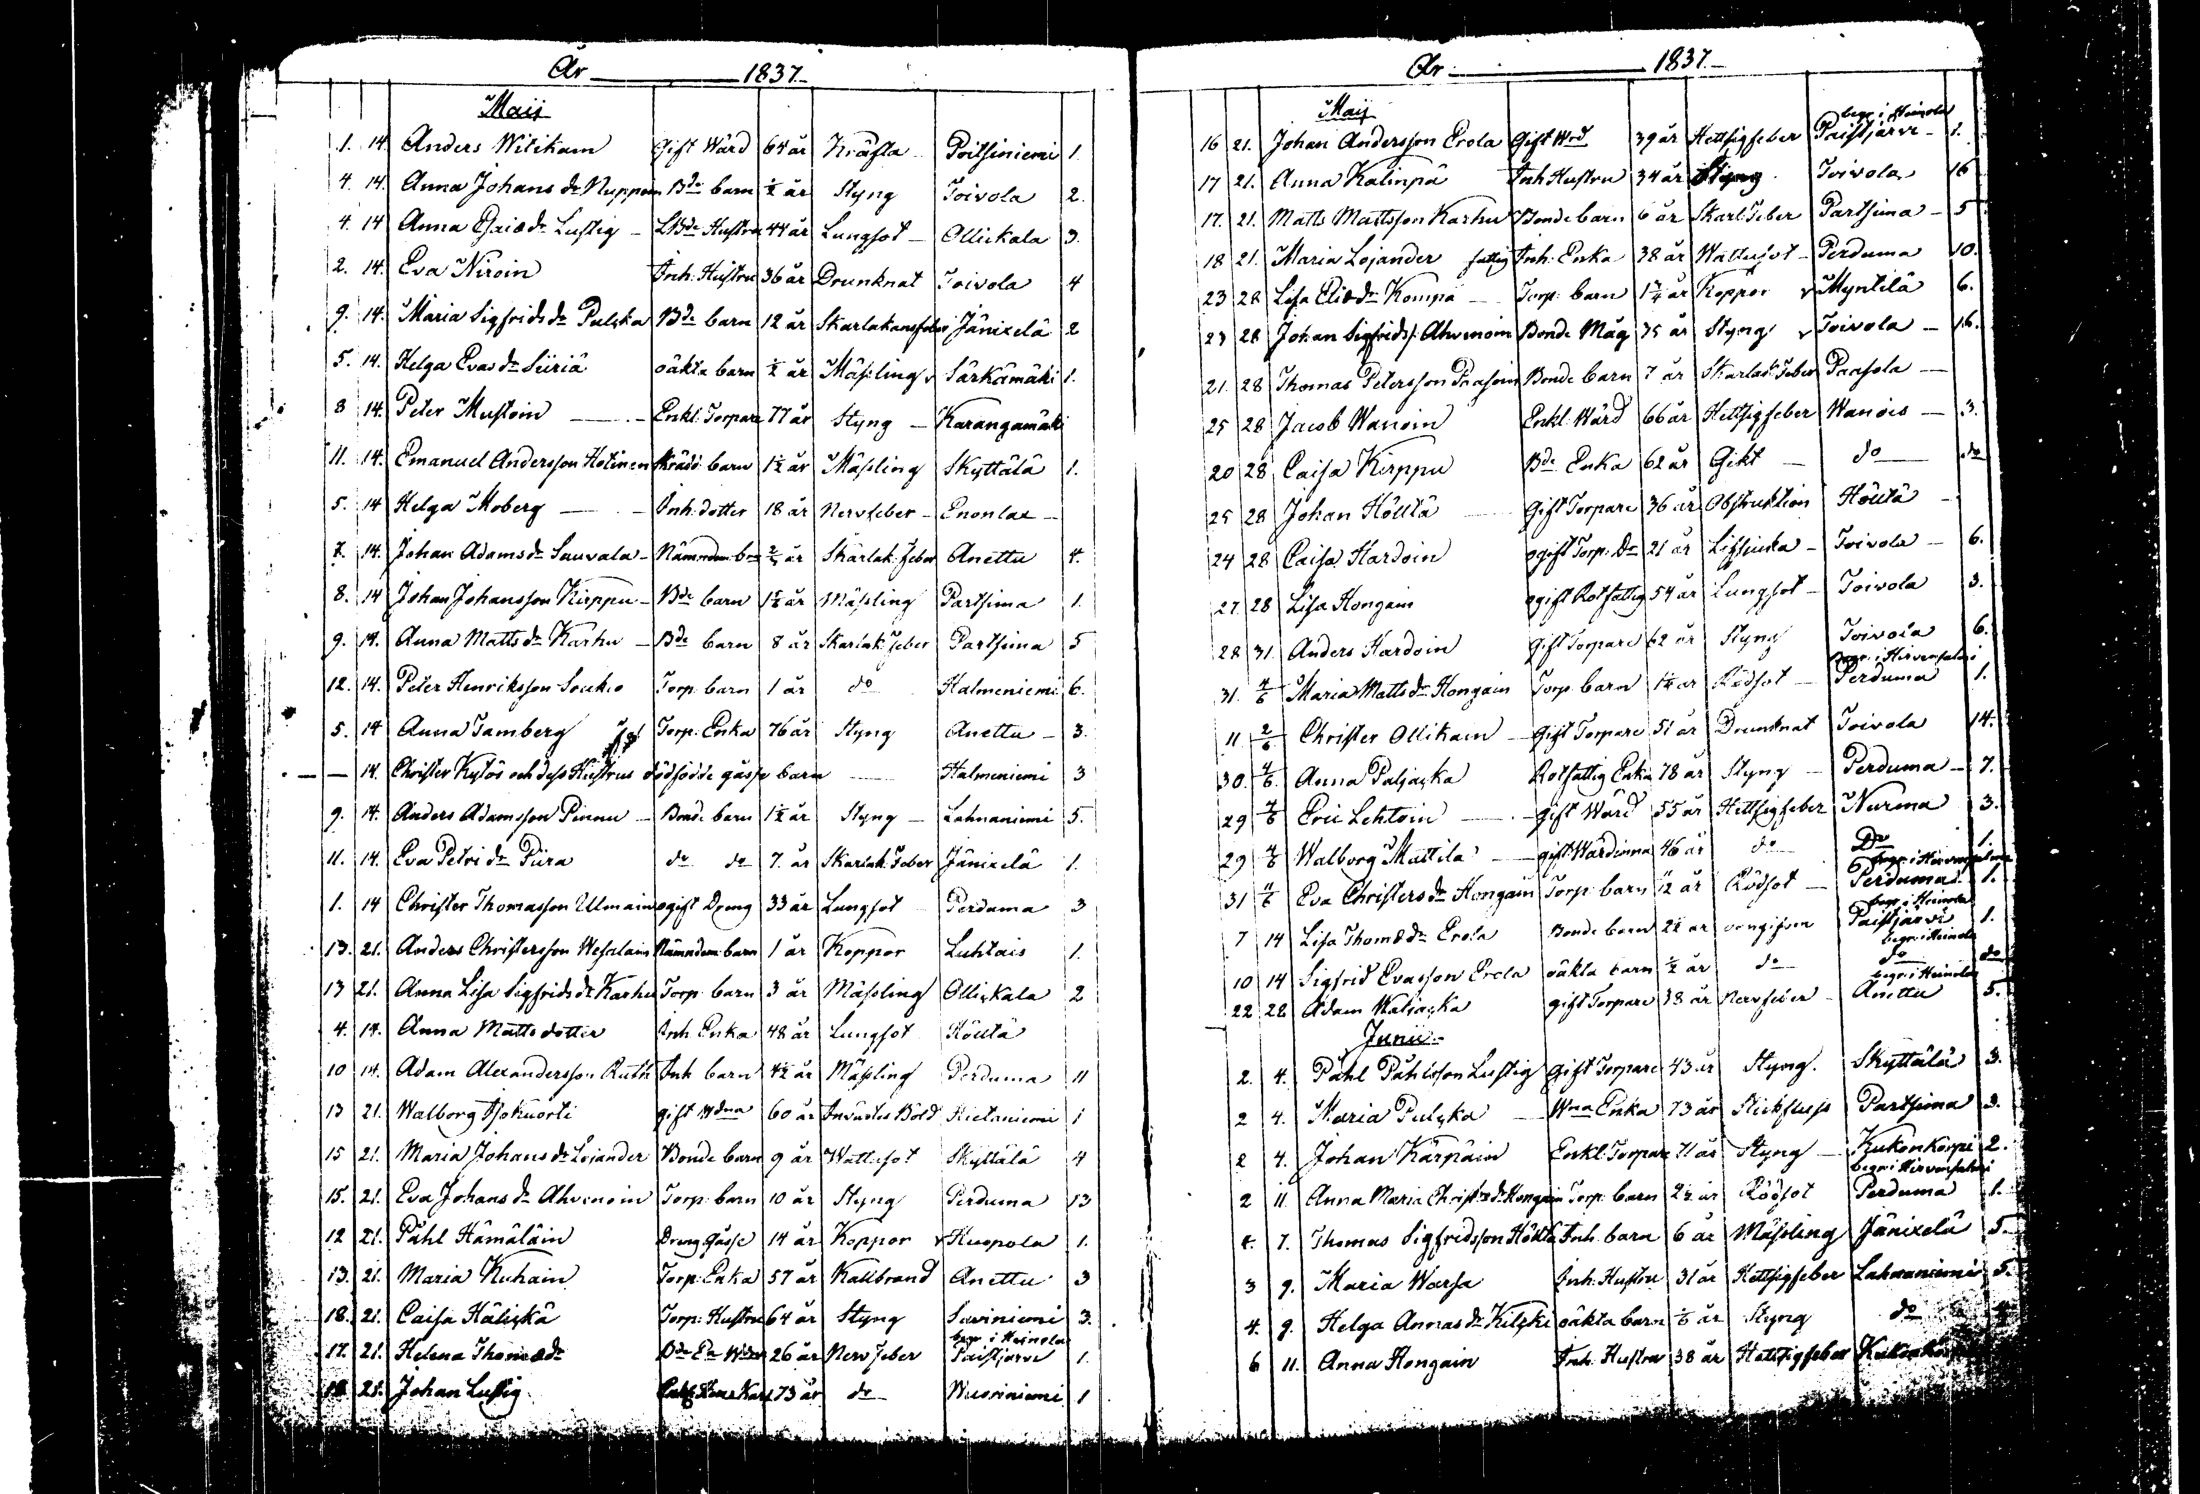 År 1837.
Maij
1. 14. Anders Witikain Gift Wärd 64 år Kräfta Poitsiniemi 1.
4. 14. Anna Johans dr Nuppoin Bde barn ½ år Styng Toivola 2.
4. 14 Anna Esaiæ dr Lustig LBde Hustru 44 år Lungsot Ollickala 3.
2. 14. Eva Niroin Inh. Hustru 36 år Drunknat Toivola 4
9. 14. Maria Sigfrids dr Pulcka Bde barn 12 år Skarlakansfeber Jänixelä 2
5. 14. Helga Evas dr Siiriä oäkta barn ½ år Mässling Särkämäki 1.
8 14. Peter Mustoin Enkl. Torpare 77 år Styng Karangamäki
11. 14. Emanuel Andersson Hotinen barn 1½ år Mässling Skyttälä 1.
5. 14 Helga Moberg Inh. dotter 18 år Nervfeber Enonlax
7. 14. Johan Adams dr Sauvala Nämndem. bn år Skarlak. feber Anettu 4.
8. 14 Johan Johansson Kirppu Bde barn år Mässling Partsima 1.
9. 14. Anna Matts dr Karhu Bde barn 8 år Skarlak. feber Partsima 5
12. 14. Peter Henriksson Soukio Torp. barn 1 år do Halmeniemi 6.
5. 14 Anna Tamberg Torp. Enka 76 år Styng Anettu 3.
— 14. Christer Kytös och dess Hustrus dödfödde gåsse barn Halmeniemi 3
9. 14. Anders Adamsson Pinnu Bonde barn 1½ år Styng Lahnaniemi 5.
11. 14. Eva Petri dr Piira do do 7 år Skarlak. Feber Jänixelä 1.
1. 14 Christer Thomasson Ulmain ogift Dreng 33 år Lungsot Perduma 3
13. 21. Anders Christersson Wesalain Nämndem. barn 1 år Koppor Luhtais 1.
13 21. Anna Lisa Sigfrids dr Karhu Torp. barn 3 år Mässling Ollickala 2
4. 14. Anna Mattsdotter Inh. Enka 48 år Lungsot Höltä
10 14. Adam Alexandersson Ruth Inh. barn 4½ år Mässling Perduma 11
13 21. Walborg Isokuorti gift Wdna 60 år Invärtes Böld Hietaniemi 1
15 21. Maria Johans dr Lojander Bonde barn 9 år Wattusot Skyttälä 4
15. 21. Eva Johans dr Ahvenoin Torp. barn 10 år Styng Perduma 13
12 21. Påhl Hämäläin Dreng Gåsse 14 år Koppor Kuopola 1.
13. 21. Maria Kuhain Torp. Enka 57 år Kallbrand Anettu 3
18. 21. Caisa Hälickä Torp. Hustru 64 år Styng Saviniemi 3.
17. 21. Helena Thomæ dr 26 år Nerv feber begr. i Heinola Paistjärvi 1.
18. 21. Johan Lustig 73 år do Wuoriniemi 1
År 1837.
Maij
16 21. Johan Andersson Erola Gift Wrd 39 år Hettsigfeber begr. i Heinola Paistjärvi 1.
17 21. Anna Kalinpä Inh Hustru 34 år Styng Toivola 16
17. 21. Matts Mattsson Karhu Bonde barn 6 år Skarl. Feber Partsima 5
18 21. Maria Lojander fattig Inh. Enka 38 år Wattusot Perduma 10.
23 28 Lisa Eliæ dr Kompa Torp. barn 1¾ år Koppor Myntilä 6.
23 28 Johan Sigfridss. Ahvenoin Bonde Måg 35 år Styng Toivola 16.
21. 28 Thomas Petersson Paasoin Bonde barn 7 år Skarlak. Feber Paasola
25 28 Jacob Wanoin Enkl. Wärd 66 år Hettsigfeber Wanois 3.
20 28 Caisa Kirppu Bde Enka 62 år Gikt do do
25 28 Johan Höltä Gift Torpare 36 år Obstruktion Höltä
24 28 Caisa Hardoin ogift Torp. Dr 21 år Toivola 6.
27. 28 Lisa Hongain ogift Rotfattig 54 år Lungsot Toivola 3.
28 31 Anders Hardoin gift Torpare 62 år Styng Toivola 6.
31. 4/6 Maria Matts dr Hongain Torp. barn år Rödsot begr. i Hirvensalmi Perduma 1.
11 2/6 Christer Ollikain gift Torpare 51 år Drunknat Toivola 14.
30. 4/6 Anna Paljacka Rotfattig Enka 78 år Styng Perduma 7.
29 4/6 Eric Lehtoin gift Wärd 55 år Hettsigfeber Nurma 3.
29 4/6 Walborg Mattila gift Wärdinna 46 år do Do 1.
31 4/6 Eva Christers dr Hongain Torp. barn 12 år Rödsot begr. i Hirvensalmi Perduma 1.
7 14 Lisa Thomæ dr Erola Bonde barn 2½ år begr. i Heinola Paistjärvi 1.
10 14 Sigfrid Evasson Erola oäkta barn ½ år do begr. i Heinola do do
22 28 Adam Waliacka gift Torpare 38 år Nervfeber begr. i Heinola Anettu 5.
Junii
2. 4. Påhl Påhlsson Lustig gift Torpare 43 år Styng. Skyttälä 3.
2 4. Maria Pulcka Wna Enka 73 år Stickfluss Partsima 3.
2 4. Johan Kärpäin Enkl. Torpare 71 år Styng Kukonkorpi 2.
2 11. Anna Maria Christ. dr Hongain Torp. barn 2½ år Rödsot begr. i Hirvensalmi Perduma 1.
4. 7. Thomas Sigfridsson Höltä Inh. barn 6 år Mässling Jänixelä 5.
3 9. Maria Warsa Inh. Hustru 31 år Hettsigfeber Lahnaniemi 5.
4. 9. Helga Annas dr Kilcki oäkta barn år Styng do
6 11. Anna Hongain Inh. Hustru 38 år Hettsigfeber